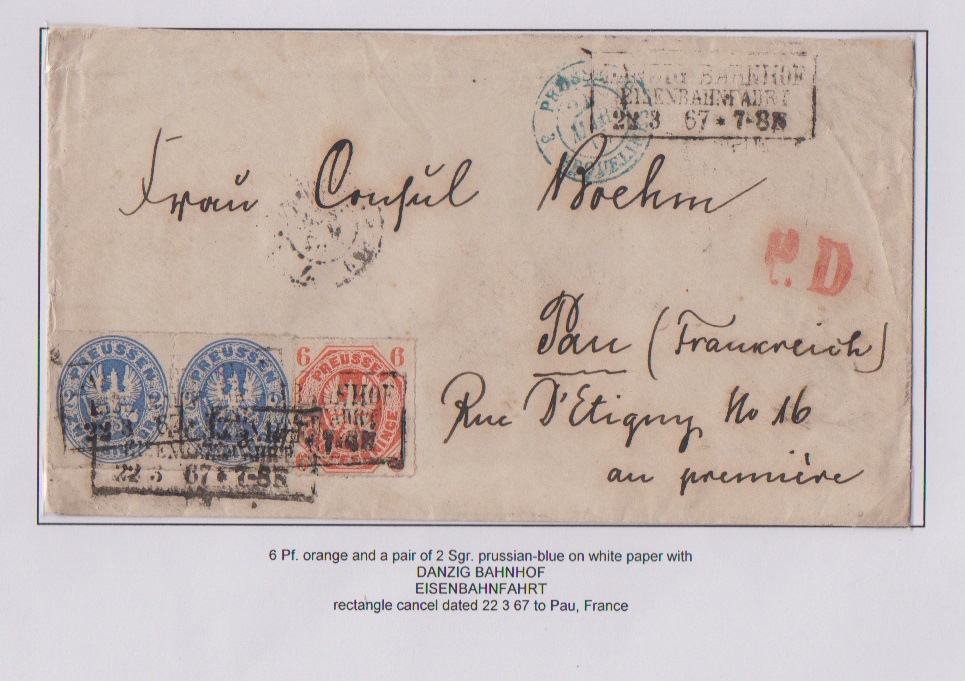 DANZIG BAHNHOF
EISENBAHNFAHRT
22 3 67 * 7-8N
Frau Consul Boehm
P.D
Pau (Frankreich)
Rue D'Etigny No 16
au première
PREUSSEN
PREUSSEN
6 PREUSSEN 6
22 3 67 * 7-8N
6 Pf. orange and a pair of 2 Sgr. prussian-blue on white paper with
DANZIG BAHNHOF
EISENBAHNFAHRT
rectangle cancel dated 22 3 67 to Pau, France